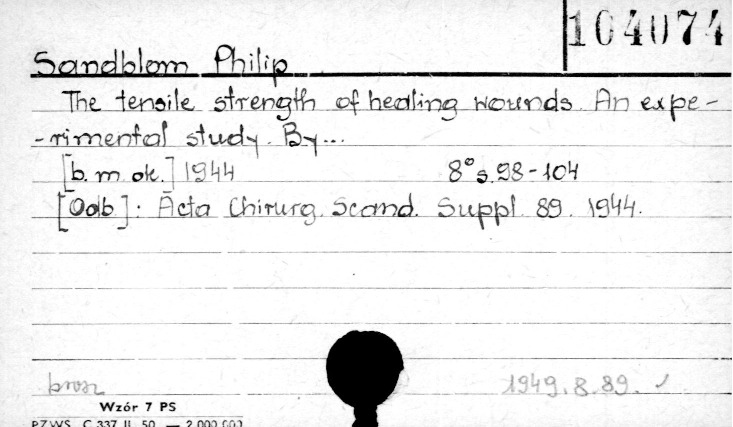 104074
Sandblom Philip
The tensile strength of healing wounds. An expe-
-rimental study. By...
[b. m. ok.] 1944 8° s. 98-104
[Odb.]: Acta Chirurg. Scand. Suppl. 89. 1944.
brosz 1949. 8. 89. ✓
Wzór 7 PS
PZWS. C 337 II. 50. — 2 000 000